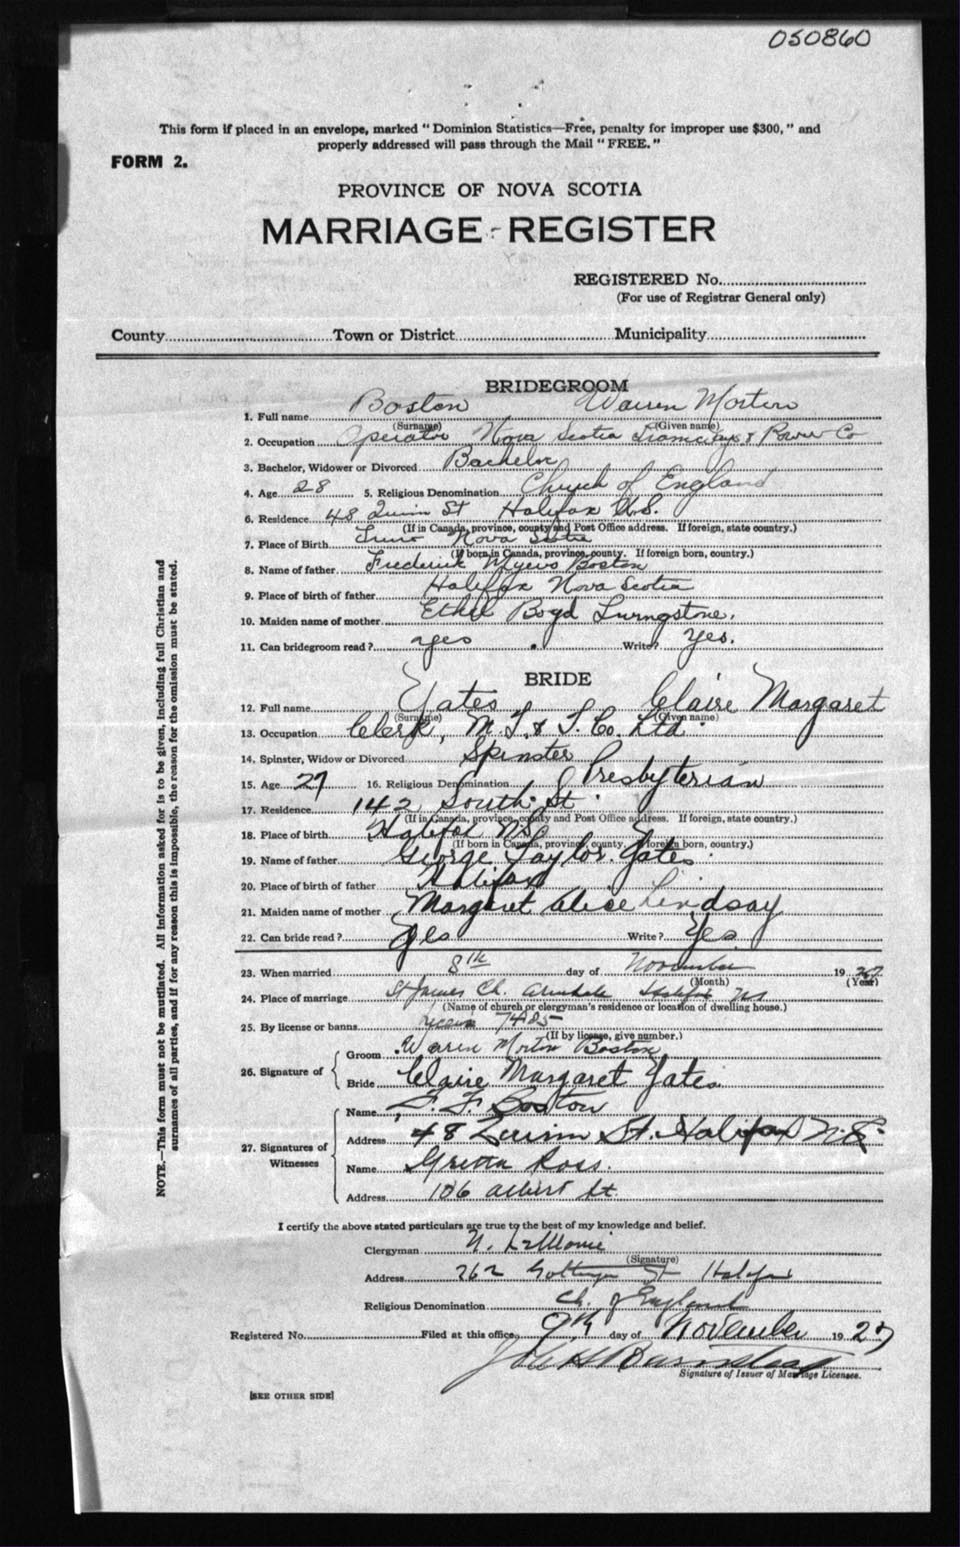 050860
This form if placed in an envelope, marked "Dominion Statistics—Free, penalty for improper use $300," and
properly addressed will pass through the Mail "FREE."
FORM 2.
PROVINCE OF NOVA SCOTIA
MARRIAGE - REGISTER
REGISTERED No.
(For use of Registrar General only)
County Town or District Municipality
BRIDEGROOM
1. Full name Boston Warren Morton
(Surname) (Given name)
2. Occupation Operator Nova Scotia Tramways & Power Co
3. Bachelor, Widower or Divorced Bachelor
4. Age 28 5. Religious Denomination Church of England
6. Residence 48 Quinn St Halifax N.S.
(If in Canada, province, county and Post Office address. If foreign, state country.)
7. Place of Birth Truro Nova Scotia
(If born in Canada, province, county. If foreign born, country.)
8. Name of father Frederick Myers Boston
9. Place of birth of father Halifax Nova Scotia
10. Maiden name of mother Ethel Boyd Livingstone.
11. Can bridegroom read? yes Write? Yes.
BRIDE
12. Full name Yates Claire Margaret
(Surname) (Given name)
13. Occupation Clerk, M. T. & T. Co. Ltd.
14. Spinster, Widow or Divorced Spinster
15. Age 27 16. Religious Denomination Presbyterian
17. Residence 142 South St.
(If in Canada, province, county and Post Office address. If foreign, state country.)
18. Place of birth Halifax N.S.
(If born in Canada, province, county. If foreign born, country.)
19. Name of father George Taylor Yates.
20. Place of birth of father Halifax
21. Maiden name of mother Margaret Alice Lindsay
22. Can bride read? Yes Write? Yes.
23. When married 8th day of November 19 27
(Month) (Year)
24. Place of marriage St James Ch. Armdale Halifax NS
(Name of church or clergyman's residence or location of dwelling house.)
25. By license or banns License 7485
(If by license, give number.)
26. Signature of
Groom Warren Morton Boston
Bride Claire Margaret Yates.
27. Signatures of Witnesses
Name F. Boston
Address 48 Quinn St. Halifax N.S.
Name Gretta Ross.
Address 106 Albert St.
I certify the above stated particulars are true to the best of my knowledge and belief.
Clergyman N.
(Signature)
Address 262 Gottingen St Halifax
Religious Denomination Ch. of England
Registered No. Filed at this office, 9th day of November 19 27
Signature of Issuer of Marriage Licenses.
[SEE OTHER SIDE]
NOTE.—This form must not be mutilated. All information asked for is to be given, including full Christian and
surnames of all parties, and if for any reason this is impossible, the reason for the omission must be stated.